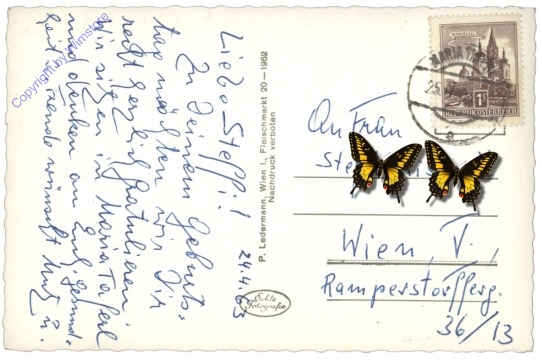 Copyright by Wimstore
24.4.63
Liebe Steffi!
Zu Deinem Geburts-
tag möchten wir Dir
recht herzlich gratulieren.
Wir sitzen in Maria Taferl
und denken an Euch. Gesund-
heit, Freude wünscht Mutz u.
P. Ledermann, Wien I., Fleischmarkt 20—1962
Nachdruck verboten
Echte
Fotografie
MARIA TA
25.
a
1S
REPUBLIK ÖSTERREICH
An Frau
Ste
Wien, V.,
Ramperstorfferg.
36/13